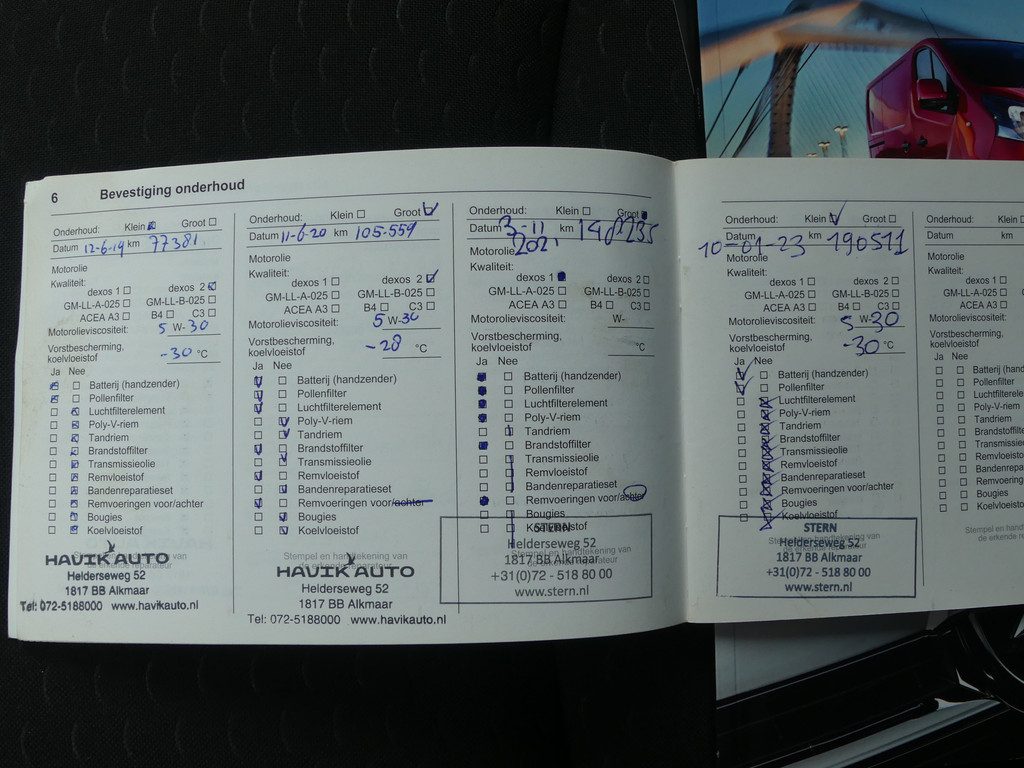 6 Bevestiging onderhoud
Onderhoud: Klein Groot
Datum 12-6-19 km 77381
Motorolie
Kwaliteit:
dexos 1 dexos 2
GM-LL-A-025 GM-LL-B-025
ACEA A3 B4 C3
Motorolieviscositeit: 5 W-30
Vorstbescherming,
koelvloeistof -30 °C
Ja Nee
Batterij (handzender)
Pollenfilter
Luchtfilterelement
Poly-V-riem
Tandriem
Brandstoffilter
Transmissieolie
Remvloeistof
Bandenreparatieset
Remvoeringen voor/achter
Bougies
Koelvloeistof
HAVIK AUTO
Helderseweg 52
1817 BB Alkmaar
Tel: 072-5188000 www.havikauto.nl
Onderhoud: Klein Groot
Datum 11-6-20 km 105-559
Motorolie
Kwaliteit:
dexos 1 dexos 2
GM-LL-A-025 GM-LL-B-025
ACEA A3 B4 C3
Motorolieviscositeit: 5 W-30
Vorstbescherming,
koelvloeistof -28 °C
Ja Nee
Batterij (handzender)
Pollenfilter
Luchtfilterelement
Poly-V-riem
Tandriem
Brandstoffilter
Transmissieolie
Remvloeistof
Bandenreparatieset
Remvoeringen voor/achter
Bougies
Koelvloeistof
Stempel en handtekening van
de erkende reparateur
HAVIK AUTO
Helderseweg 52
1817 BB Alkmaar
Tel: 072-5188000 www.havikauto.nl
Onderhoud: Klein Groot
Datum 3-11 km
Motorolie 2021
Kwaliteit:
dexos 1 dexos 2
GM-LL-A-025 GM-LL-B-025
ACEA A3 B4 C3
Motorolieviscositeit: W-
Vorstbescherming,
koelvloeistof °C
Ja Nee
Batterij (handzender)
Pollenfilter
Luchtfilterelement
Poly-V-riem
Tandriem
Brandstoffilter
Transmissieolie
Remvloeistof
Bandenreparatieset
Remvoeringen voor/achter
Bougies
Koelvloeistof
Stempel en handtekening van
de erkende reparateur
STERN
Helderseweg 52
1817 BB Alkmaar
+31(0)72 - 518 80 00
www.stern.nl
Onderhoud: Klein Groot
Datum 10-01-23 km 190511
Motorolie
Kwaliteit:
dexos 1 dexos 2
GM-LL-A-025 GM-LL-B-025
ACEA A3 B4 C3
Motorolieviscositeit: 5 W-30
Vorstbescherming,
koelvloeistof -30 °C
Ja Nee
Batterij (handzender)
Pollenfilter
Luchtfilterelement
Poly-V-riem
Tandriem
Brandstoffilter
Transmissieolie
Remvloeistof
Bandenreparatieset
Remvoeringen voor/achter
Bougies
Koelvloeistof
Stempel en handtekening van
de erkende reparateur
STERN
Helderseweg 52
1817 BB Alkmaar
+31(0)72 - 518 80 00
www.stern.nl
Onderhoud: Klein
Datum km
Motorolie
Kwaliteit:
dexos 1
GM-LL-A-025
ACEA A3
Motorolieviscositeit:
Vorstbescherming,
koelvloeistof
Ja Nee
Batterij (handzender)
Pollenfilter
Luchtfilterelement
Poly-V-riem
Tandriem
Brandstoffilter
Transmissieolie
Remvloeistof
Bandenreparatieset
Remvoeringen
Bougies
Koelvloeistof
Stempel en
de erkende